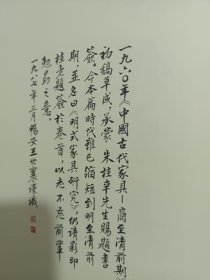 一九六〇年《中國古代家具—商至清前期》
初稿草成，承蒙朱桂辛先生賜題書
簽。今本篇時代雖已縮短到明至清前
期，並名曰《明式家具研究》，仍請影印
桂老題簽於卷首，以志不忘前輩
勉勗之意。
一九八七年三月暢安王世襄謹識